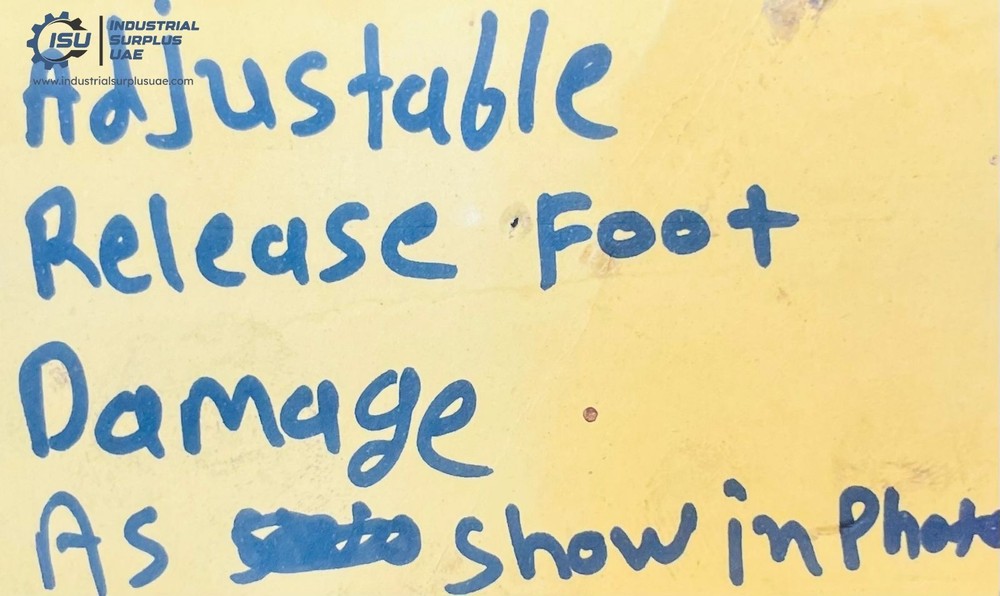 ISU
INDUSTRIAL
SURPLUS
UAE
www.industrialsurplusuae.com
Adjustable
Release Foot
Damage
As show in Photo